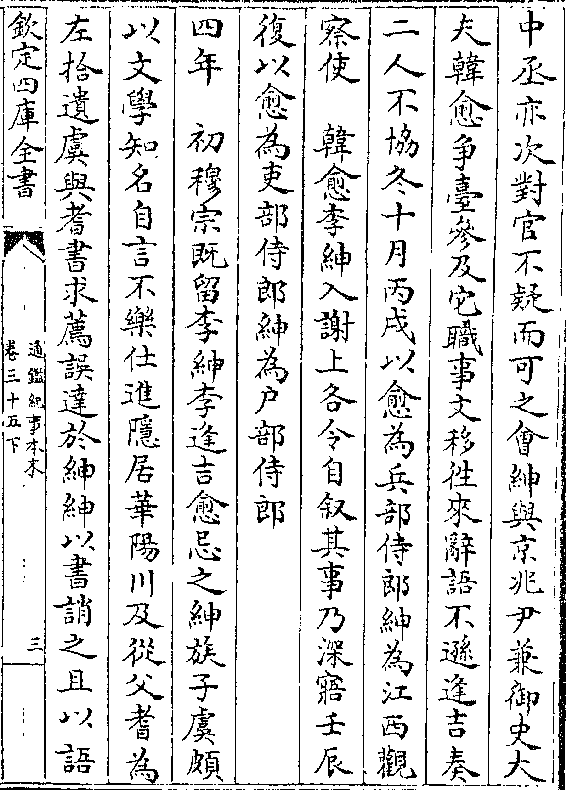 中丞亦次對官不疑而可之會紳與京兆尹兼御史大
夫韓愈争臺參及它職事文移往來辭語不遜逢吉奏
二人不協冬十月丙戌以愈為兵部侍郎紳為江西觀
察使　韓愈李紳入謝上各令自叙其事乃深寤壬辰
復以愈為吏部侍郎紳為户部侍郎
四年　初穆宗既留李紳李逢吉愈忌之紳族子虞頗
以文學知名自言不樂仕進隱居華陽川及從父耆為
左拾遺虞與耆書求薦誤達於紳紳以書誚之且以語
欽定四庫全書
通鑑紀事本末
卷三十五下
三